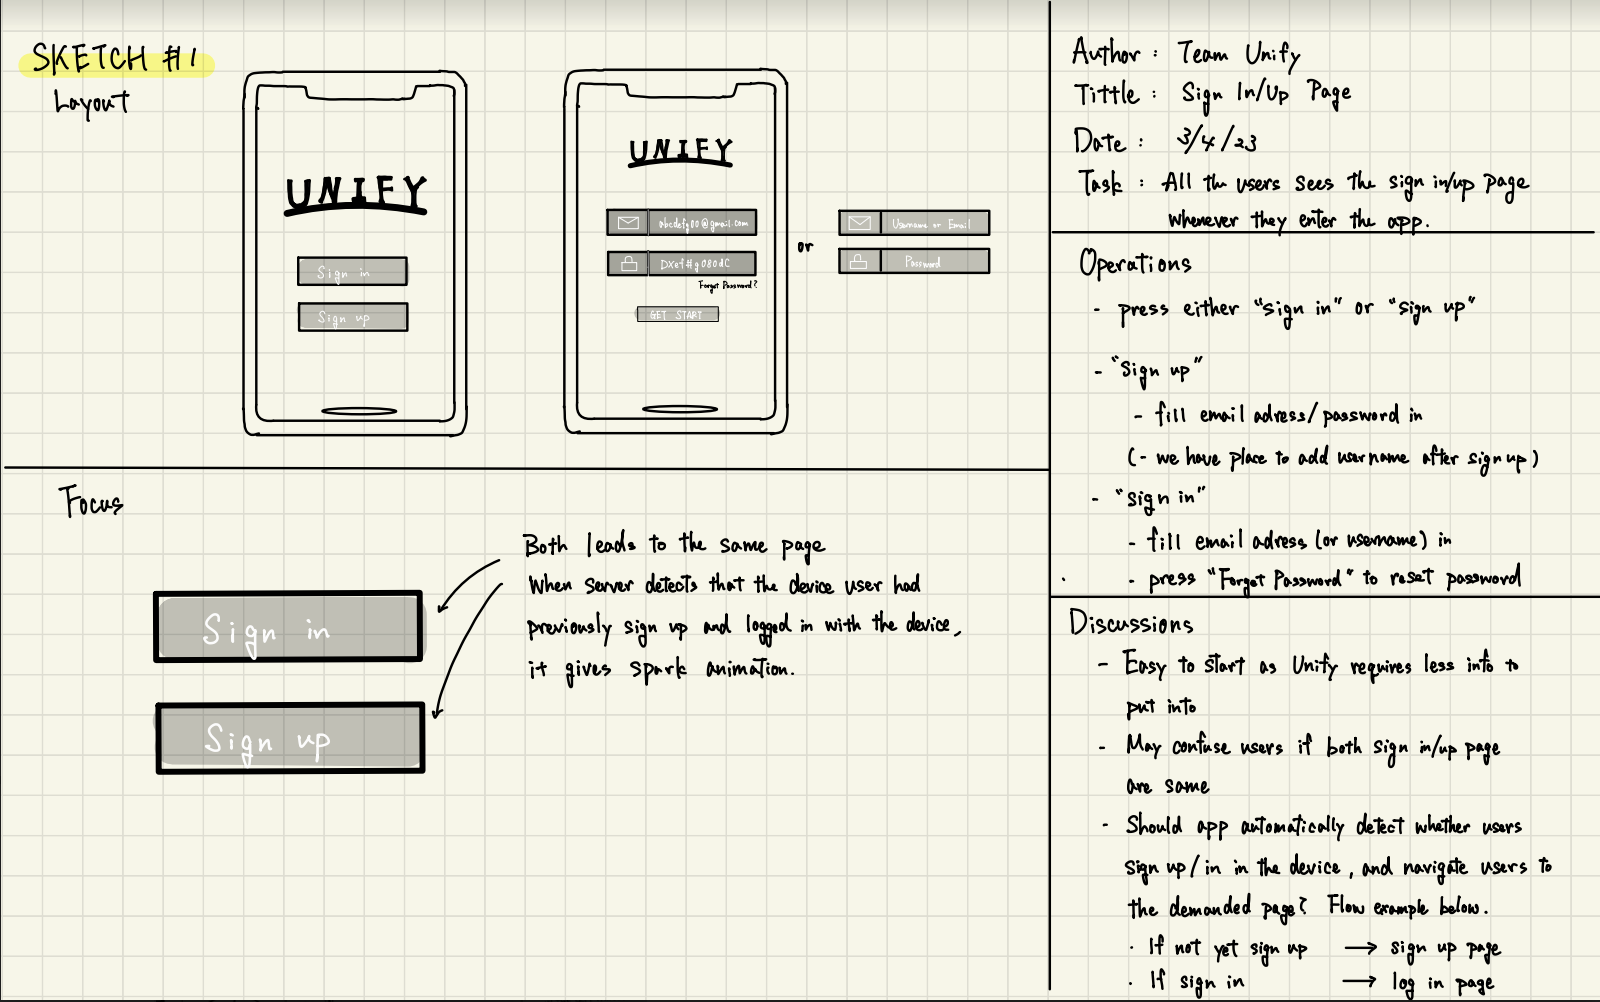 SKETCH #1
Layout
UNIFY
Sign in
Sign up
UNIFY
abcdefg00@gmail.com
DXef#g080dC
Forgot Password?
GET START
or
Username or Email
Password
Focus
Sign in
Sign up
Both leads to the same page
When server detects that the device user had
previously sign up and logged in with the device,
it gives spark animation.
Author : Team Unify
Tittle : Sign In/Up Page
Date : 3/4/23
Task : All the users sees the sign in/up page
whenever they enter the app.
Operations
- press either "sign in" or "sign up"
- "Sign up"
- fill email adress/password in
(- we have place to add username after sign up)
- "sign in"
- fill email adress (or username) in
- press "Forgot Password" to reset password
Discussions
- Easy to start as Unify requires less info to
put into
- May confuse users if both sign in/up page
are same
- Should app automatically detect whether users
sign up/in in the device, and navigate users to
the demanded page? Flow example below.
· If not yet sign up → sign up page
· If sign in → log in page